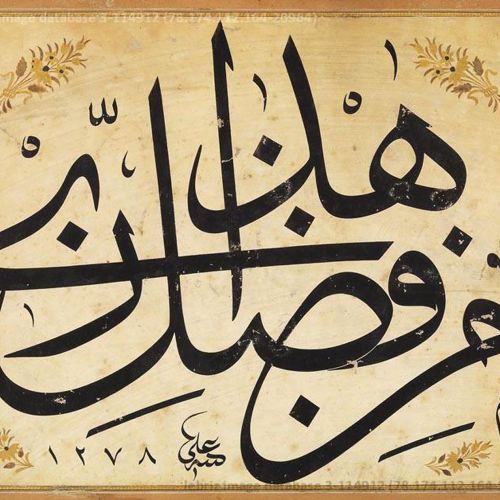 هذا من فضل ربي
علي
١٢٧٨
image database 3-114912 (78.174.112.164-20984)
image database 3-114912 (78.174.112.164